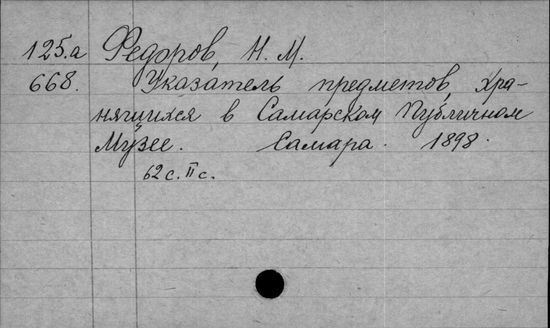 125.а Федоров, Н. М.
668. Указатель предметов, хра-
нящихся в Самарском Публичном
Музее. Самара. 1898.
62 с. II с.